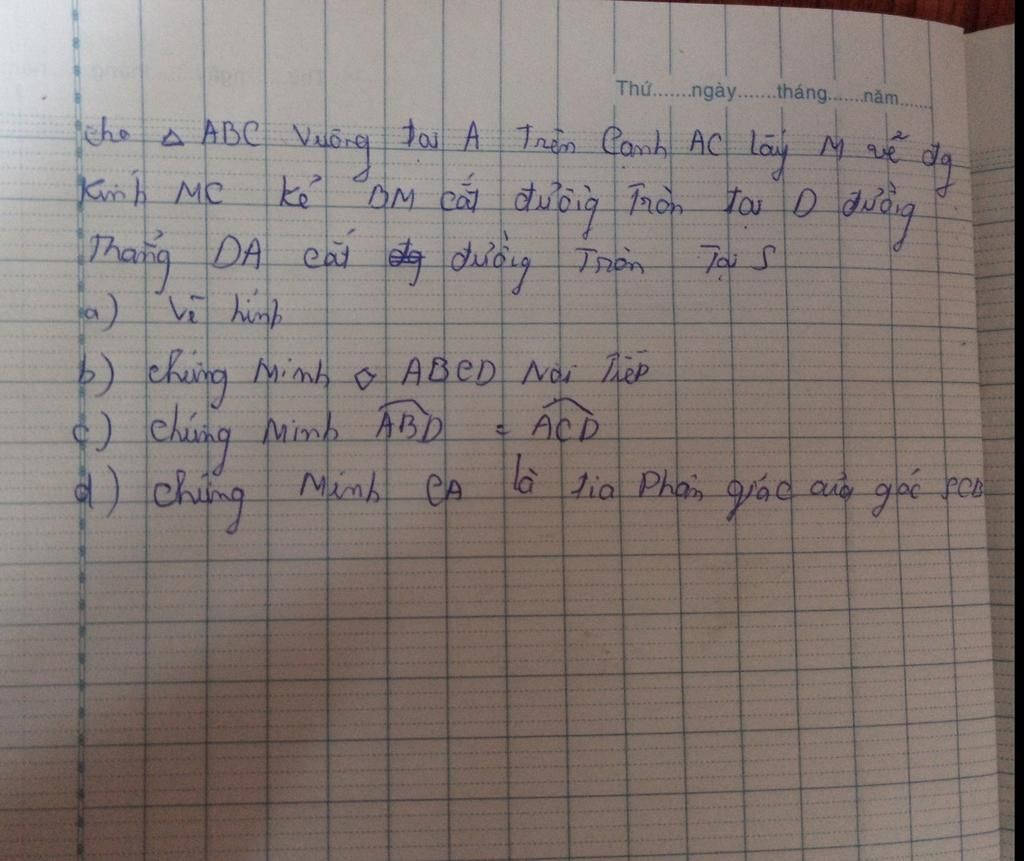 Thứ.......ngày.......tháng.......năm.......
cho △ ABC Vuông tại A Trên Cạnh AC lấy M vẽ đg
Kính MC Kẻ BM cắt đường Tròn tại D đường
Thẳng DA cắt đường Tròn Tại S
a) Vẽ hình
b) chứng Minh ◇ ABCD Nội Tiếp
c) chứng Minh ABD = ACD
d) chứng Minh CA là tia Phân giác của góc SCB